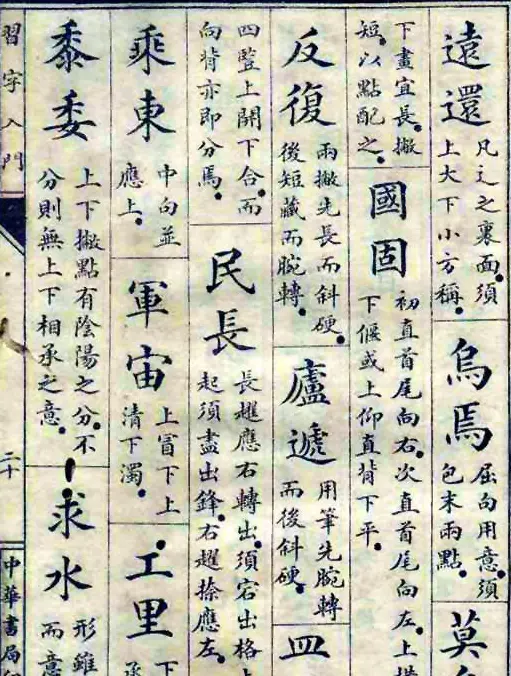 遠還
凡辶之裏面。須
上大下小方稱。
烏焉
屈向用意。須
包末兩點。
莫
下畫宜長。撇
短。以點配之。
國固
初直首尾向右。次直首尾向左。上橫
下偃或上仰直背下平。
反復
兩撇先長而斜硬。
後短藏而腕轉。
廬遞
用筆先腕轉
而後斜硬。
皿
四豎上開下合。而
向背亦即分焉。
民長
長趯應右轉出。須宕出格上
起須盡出鋒。右趯捺應左。
乘東
中向並
應上。
軍宙
上冒下上
清下濁。
工里
下
承
黍委
上下撇點有陰陽之分。不
分則無上下相承之意。
求水
形雖
而意
習字入門
二十
中華書局